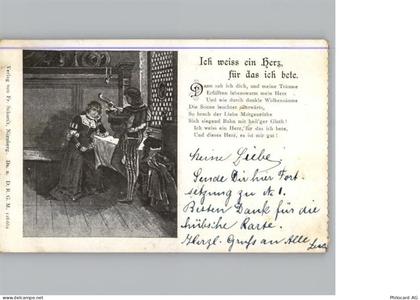 Ich weiss ein Herz,
für das ich bete.
Dann sah ich dich, und meine Träume
Erfüllten lebenswarm mein Herz
Und wie durch dunkle Wolkensäume
Die Sonne leuchtet
So brach der Liebe Morgenröthe
Sich siegend Bahn mit heil'ger Gluth!
Ich weiss ein Herz, für das ich bete,
Und dieses Herz, es ist mir gut!
Meine Liebe!
Sende Dir hier Fort
setzung zu № 1.
Besten Dank für die
hübsche Karte.
Herzl. Gruss an Alle
Verlag von Fr. Schardt, Nürnberg. D. R. G. M.